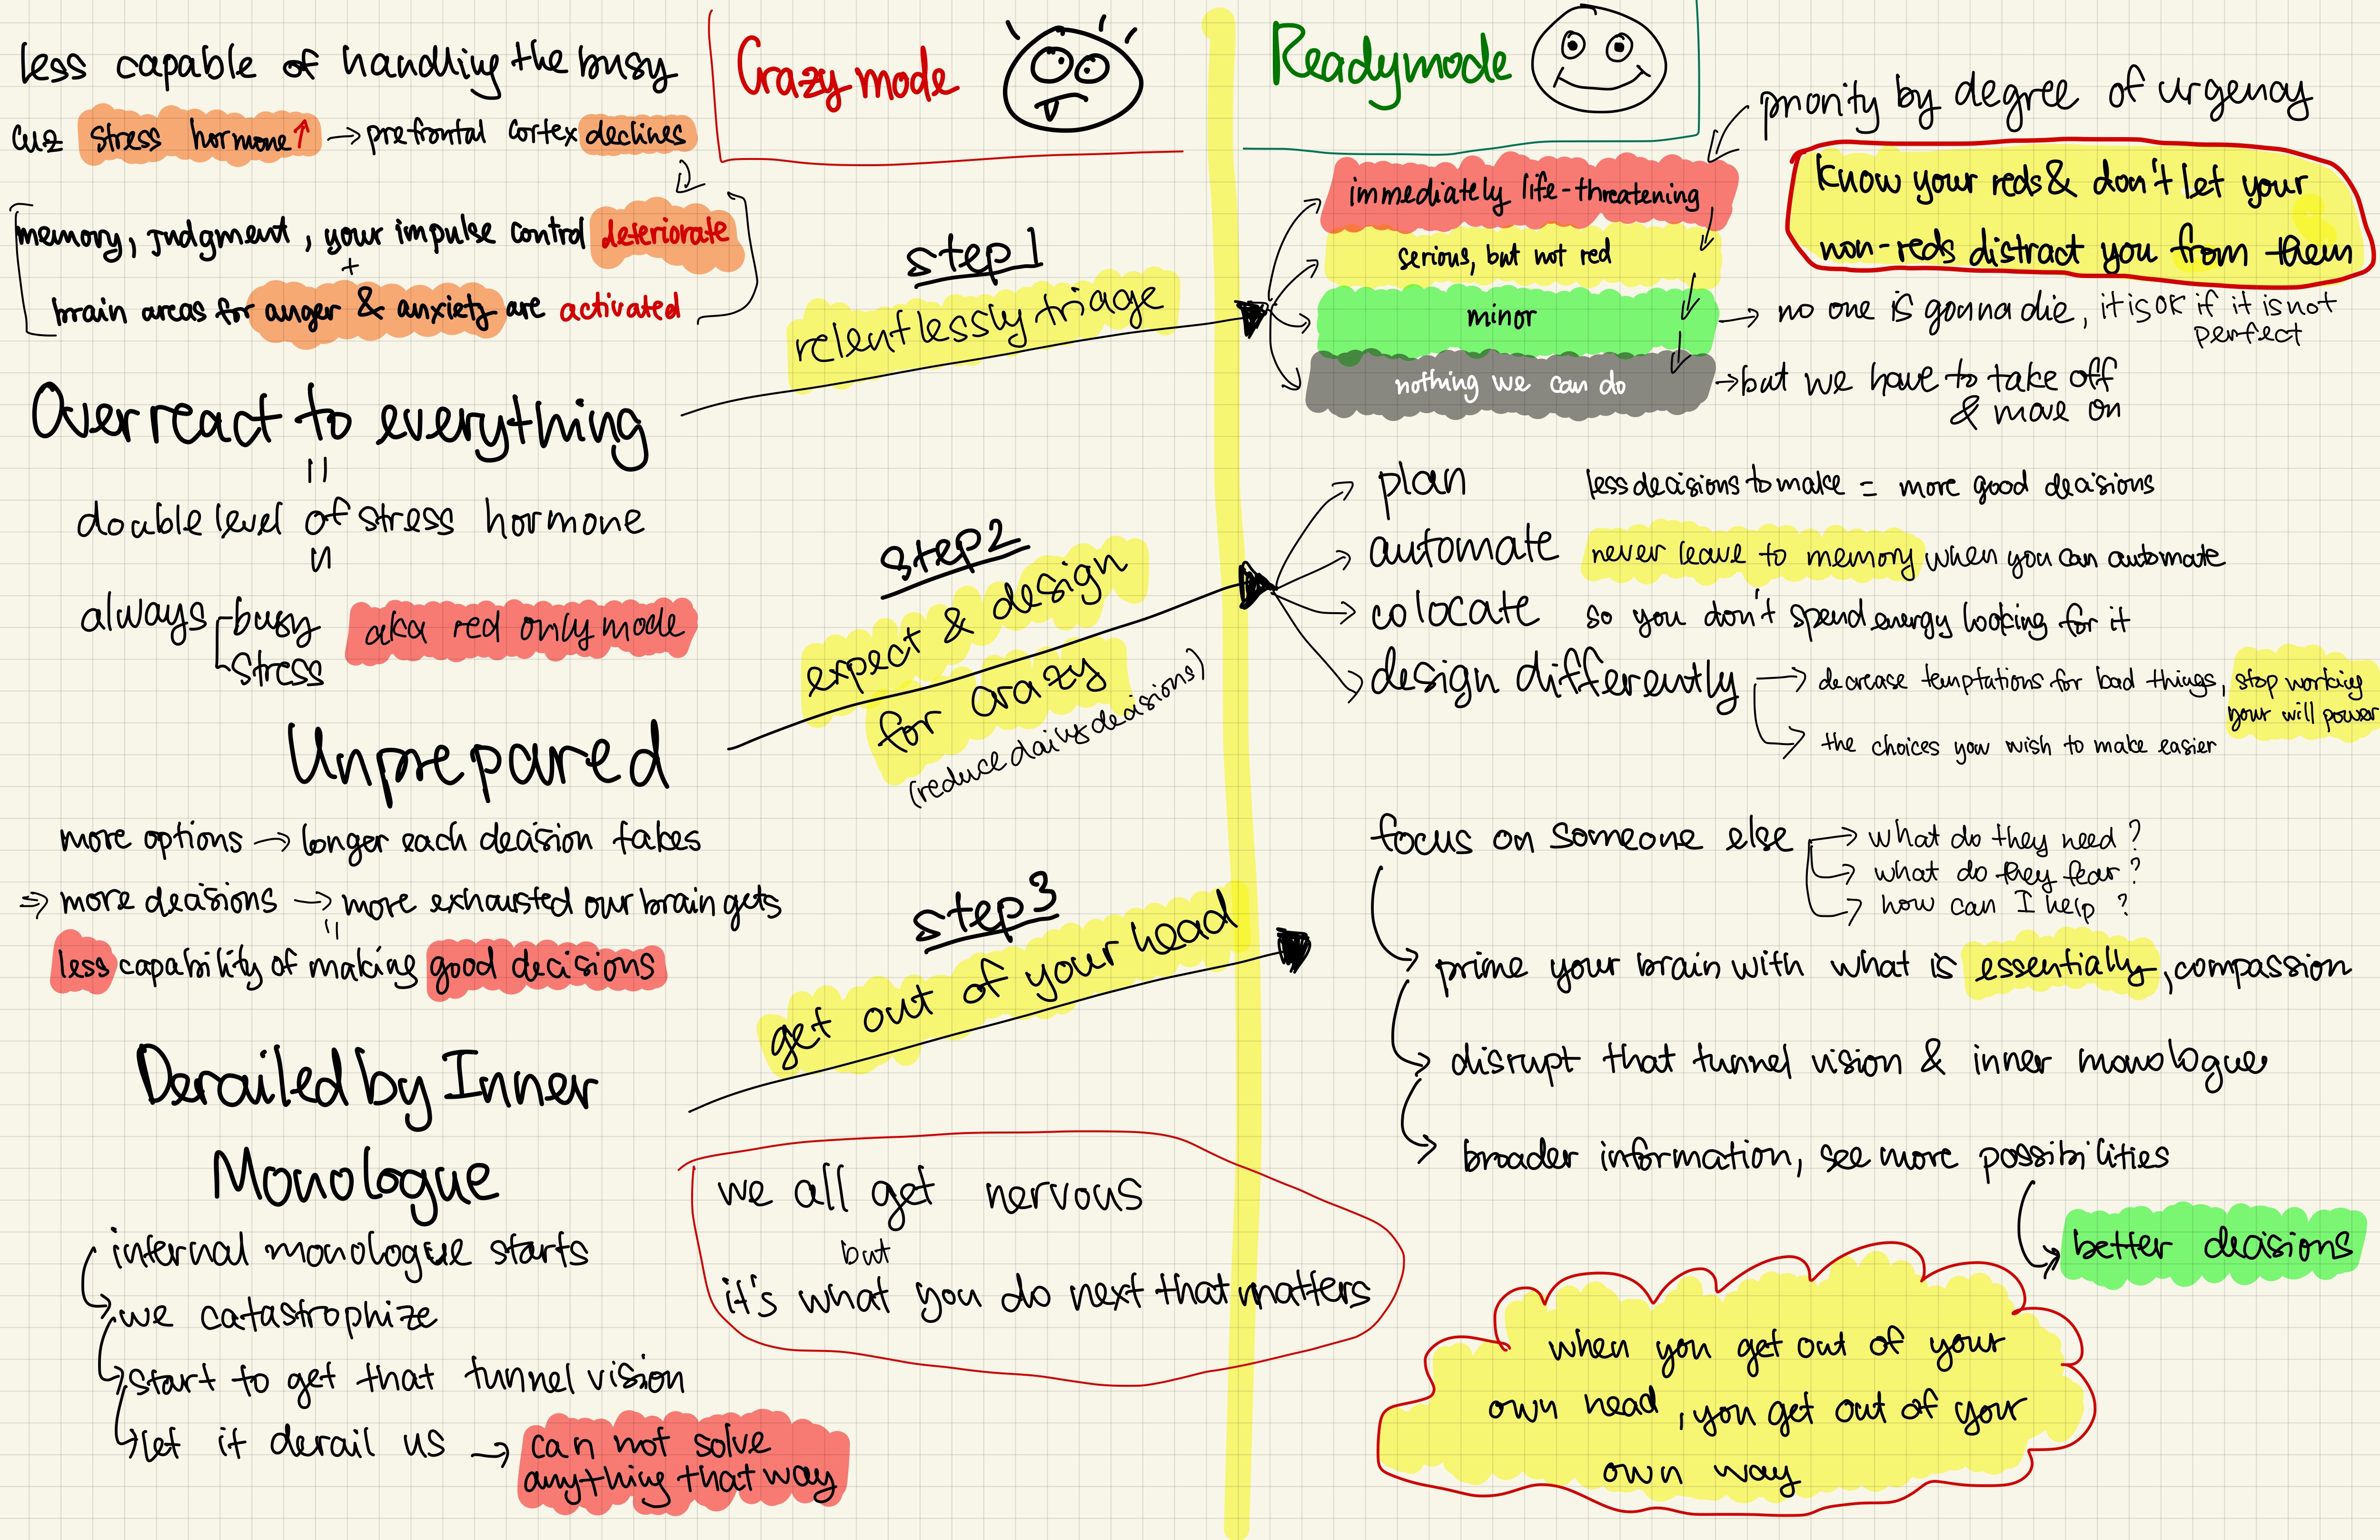 less capable of handling the busy
cuz stress hormone↑ → prefrontal cortex declines
memory, judgment, your impulse control deteriorate
+
brain areas for anger & anxiety are activated
Overreact to everything
=
double level of stress hormone
always busy
stress
aka red only mode
Unprepared
more options → longer each decision takes
⇒ more decisions → more exhausted our brain gets
less capability of making good decisions
Derailed by Inner
Monologue
internal monologue starts
we catastrophize
start to get that tunnel vision
let it derail us → can not solve
anything that way
Crazy mode
step 1
relentlessly triage
step2
expect & design
for crazy
(reduce daily decisions)
step3
get out of your head
we all get nervous
but
it's what you do next that matters
Ready mode
priority by degree of urgency
immediately life-threatening
serious, but not red
minor
nothing we can do
know your reds & don't let your
non-reds distract you from them
→ no one is gonna die, it is ok if it is not
perfect
→ but we have to take off
& move on
plan less decisions to make = more good decisions
automate never leave to memory when you can automate
colocate so you don't spend energy looking for it
design differently → decrease temptations for bad things, stop working
your will power
→ the choices you wish to make easier
focus on someone else → what do they need?
→ what do they fear?
→ how can I help?
prime your brain with what is essentially, compassion
disrupt that tunnel vision & inner monologue
broader information, see more possibilities
better decisions
when you get out of your
own head, you get out of your
own way